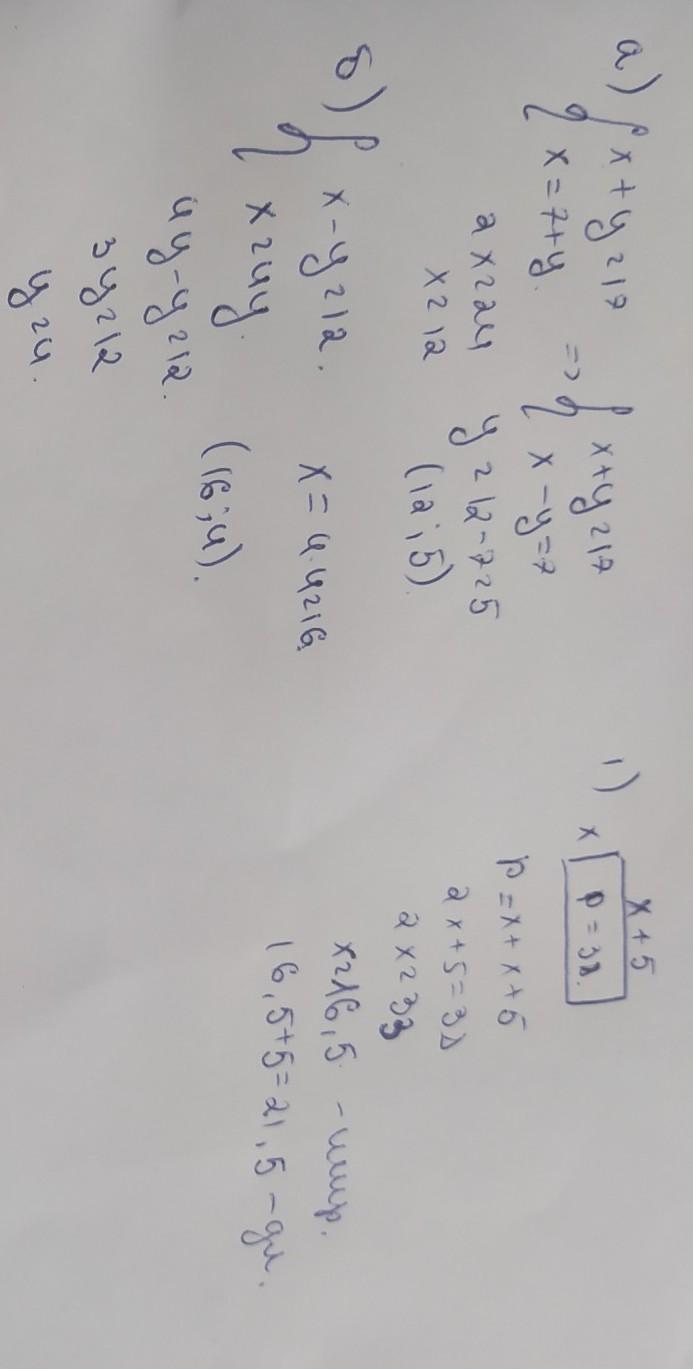 а) { x + y = 17 => { x + y = 17
x = 7 + y. x - y = 7
2x = 24 y = 12 - 7 = 5
x = 12 (12; 5)
б) { x - y = 12. x = 4·4 = 16.
x = 4y. (16; 4).
4y - y = 12.
3y = 12
y = 4.
1) x + 5
x P = 38.
P = x + x + 5
2x + 5 = 38
2x = 33
x = 16,5 - шир.
16,5 + 5 = 21,5 - дл.